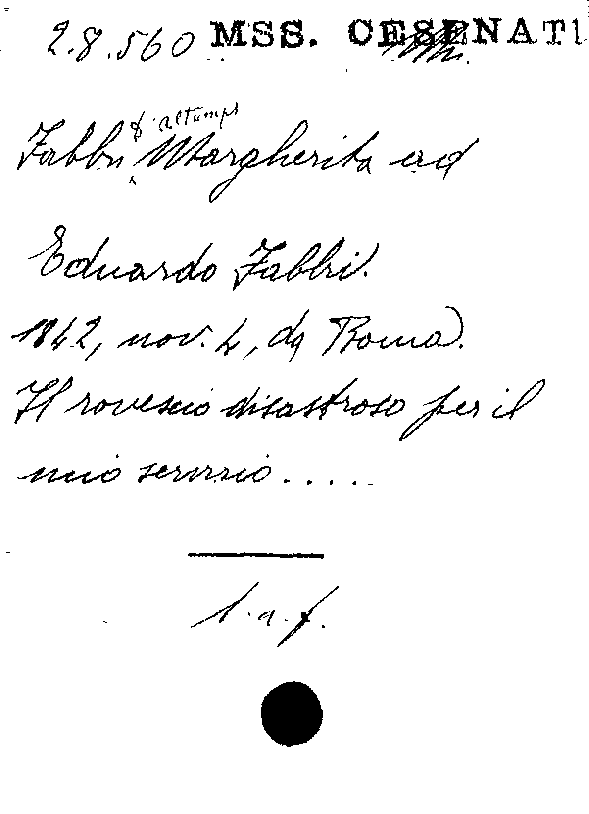 2.8.560 MSS. CESENATI
Fabbri d'altemps Margherita ad
Eduardo Fabbri.
1842, nov. 4, da Roma).
Il rovescio disastroso per il
mio servizio.....
l. a. f.